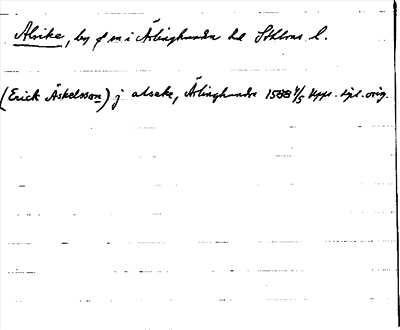 Alsike, by f sn i Ärlinghundra hd Sthlms l.
(Erick Äskelsson) j alseke, Ärlinghundre 1588 4/5 Uppl. hjl. orig.